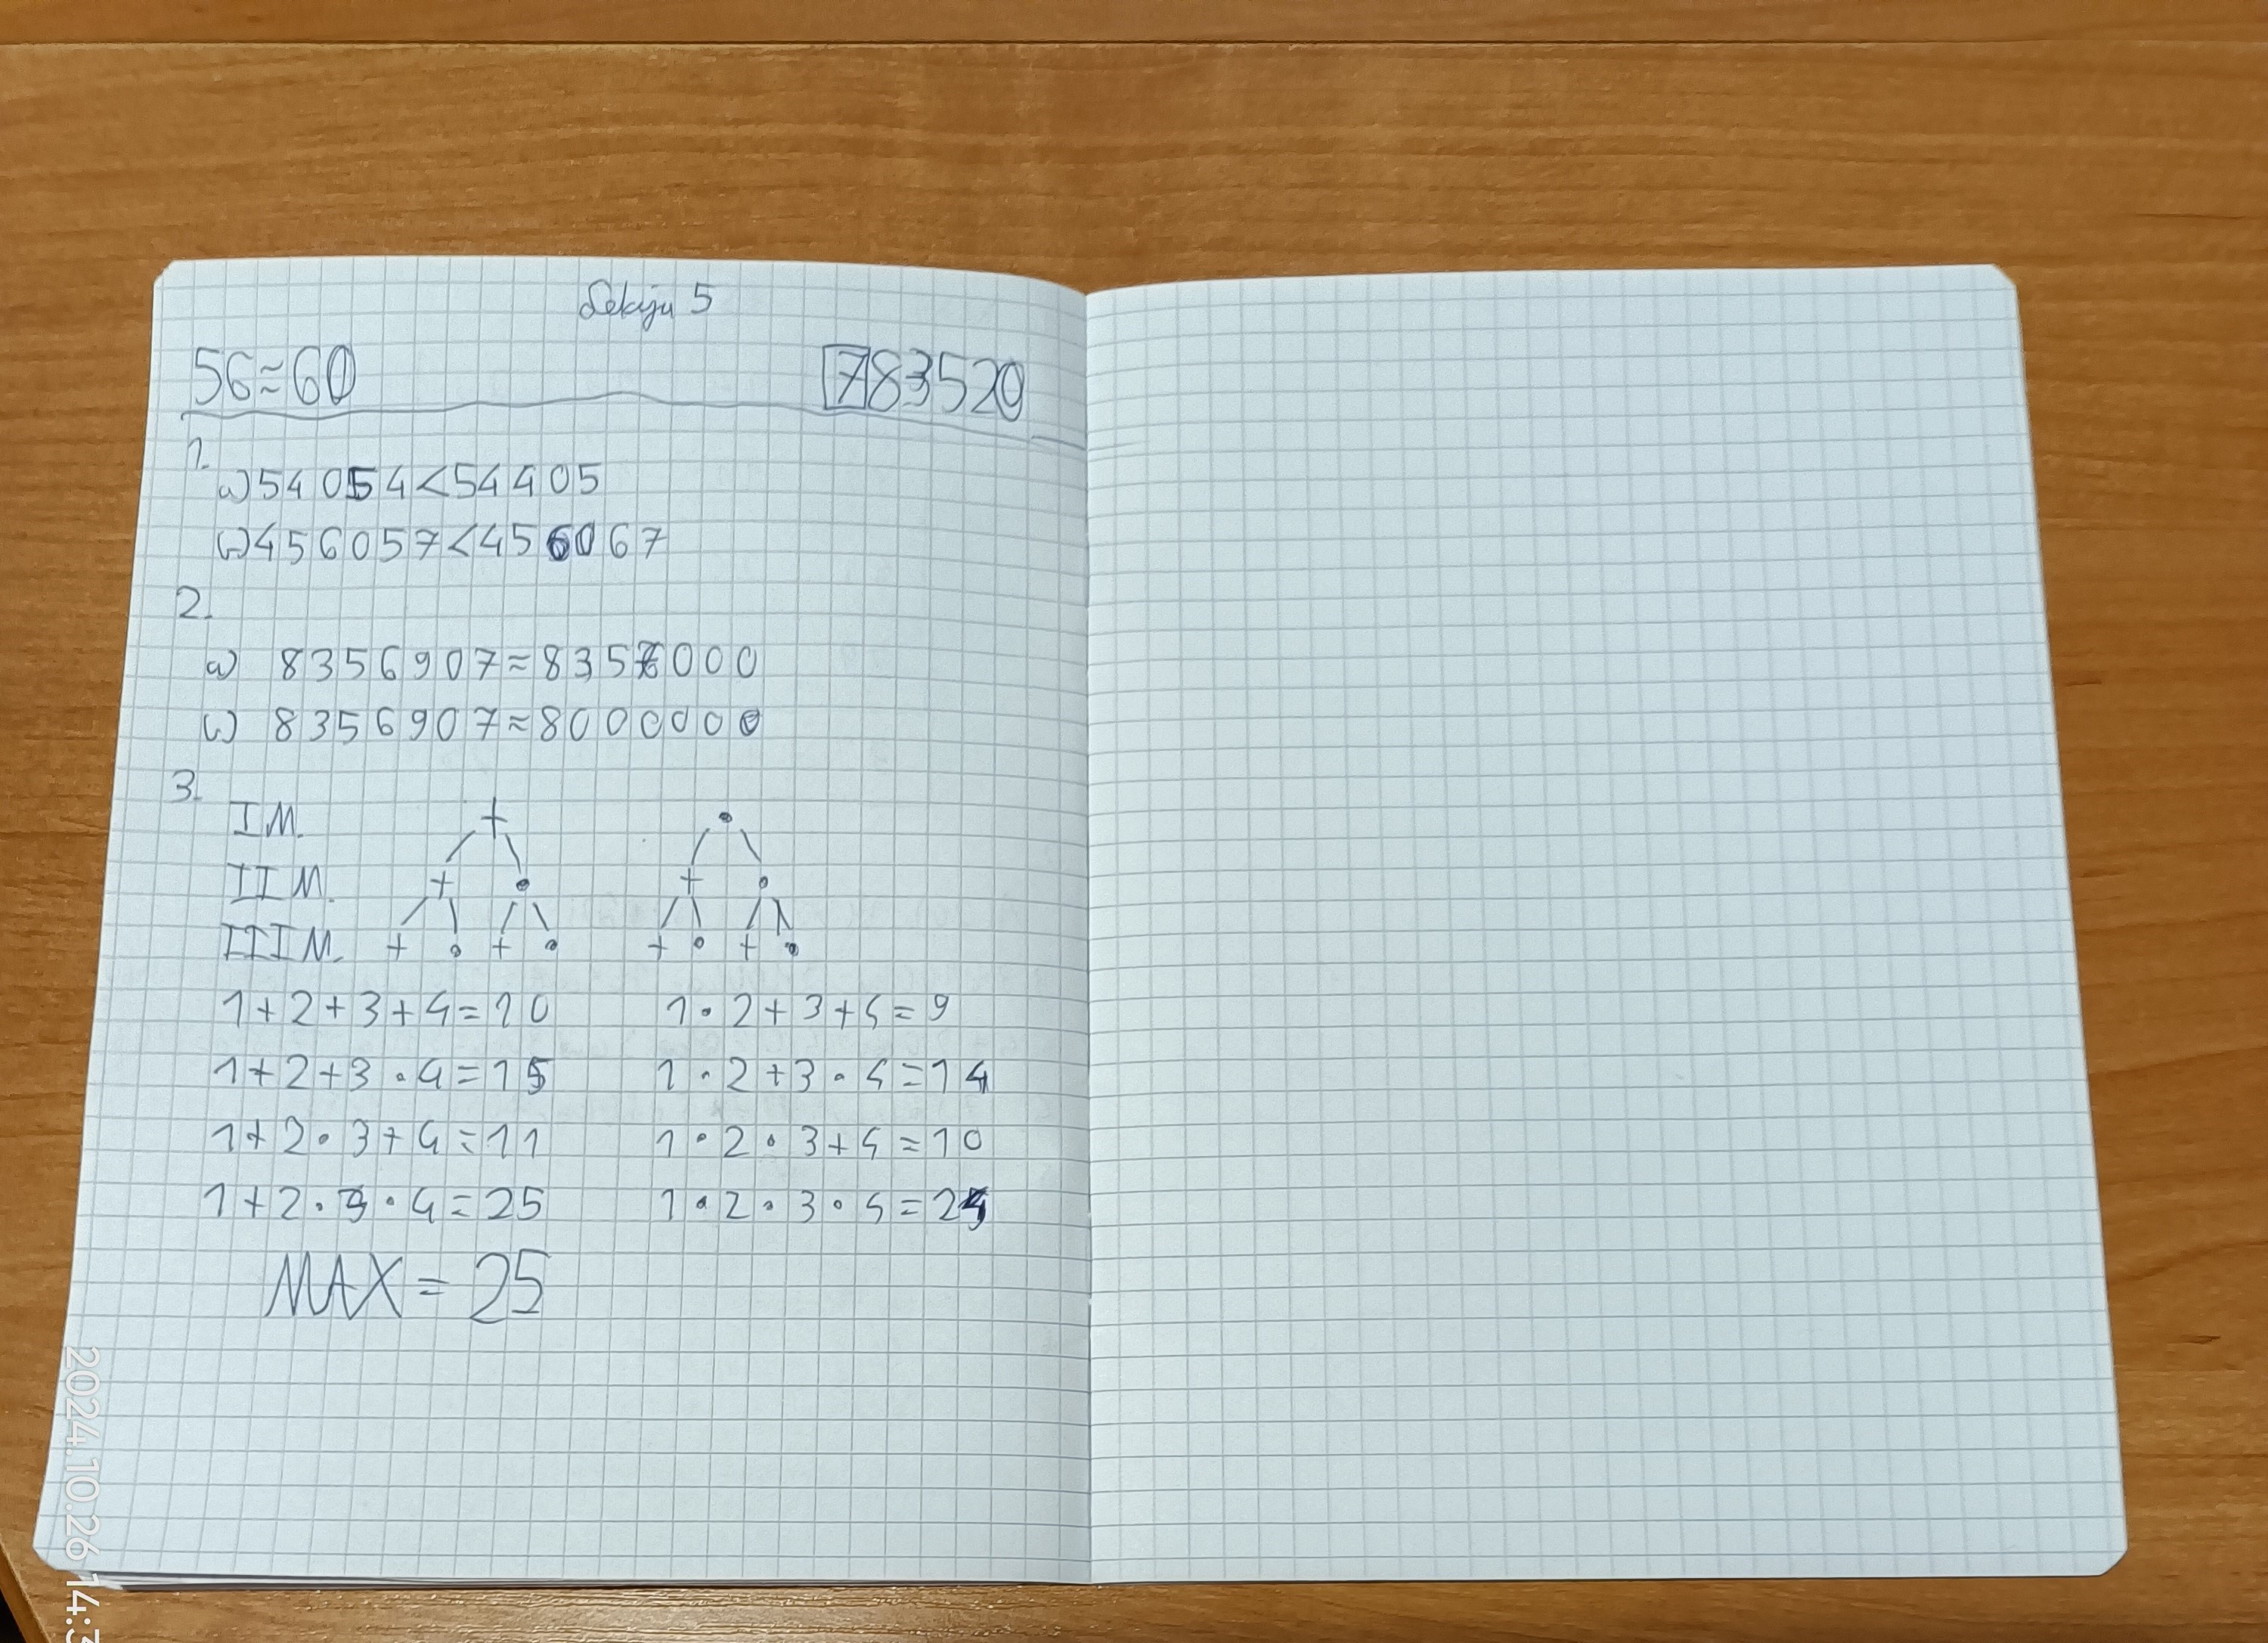 Lekcja 5
56≈60 783520
1.
a) 54054<54405
b) 456057<456067
2.
a) 8356907≈8357000
b) 8356907≈8000000
3.
I M. + •
II M. + • + •
III M. + • + • + • + •
1+2+3+4=10 1•2+3+4=9
1+2+3•4=15 1•2+3•4=14
1+2•3+4=11 1•2•3+4=10
1+2•3•4=25 1•2•3•4=24
MAX=25
2024.10.26